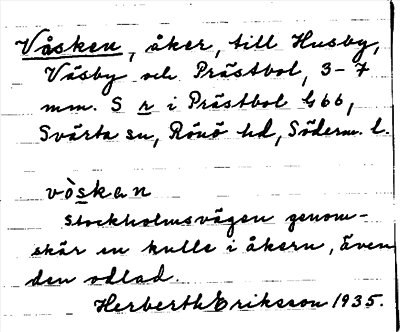 Våsken, åker, till Husby,
Väsby och Prästbol, 3-7
mm. S r i Prästbol G66,
Svärta sn, Rönö hd, Söderm. l.
vòskan
Stockholmsvägen genom-
skär en kulle i åkern, även
den odlad.
Herberth Eriksson 1935.